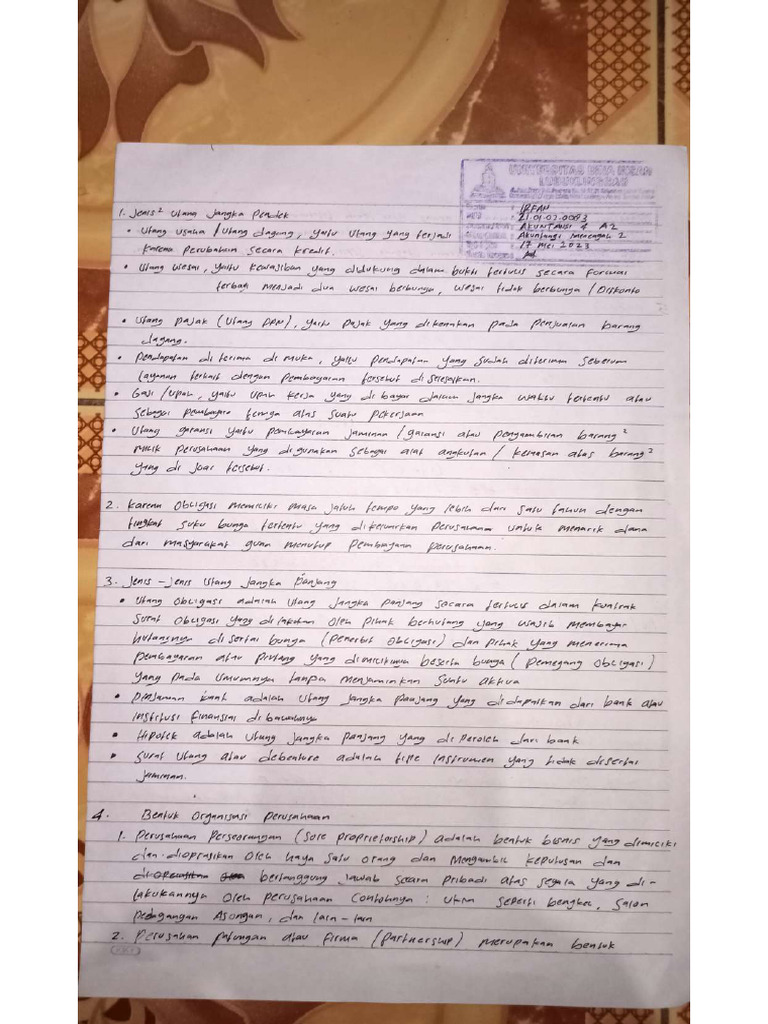 UNIVERSITAS BINA INSAN
LUBUKLINGGAU
: IRFAN
: 21 01 02 0083
: AKUNTANSI 4 A2
: Akuntansi Menengah 2
: 17 Mei 2023
1. Jenis² Utang Jangka Pendek
• Utang usaha / Utang dagang, yaitu utang yang terjadi
karena perubahan secara kredit.
• Utang Wesel, yaitu kewajiban yang didukung dalam bukti tertulis secara formal
terbagi menjadi dua wesel berbunga, wesel tidak berbunga / Diskonto
• Utang pajak (utang PPN), yaitu pajak yang dikenakan pada penjualan barang
dagang.
• Pendapatan di terima di muka, yaitu pendapatan yang sudah diterima sebelum
layanan terkait dengan pembayaran tersebut di selesaikan.
• Gaji /upah, yaitu upah kerja yang di bayar dalam jangka waktu tertentu atau
sebagai pembayara tenaga atas suatu pekerjaan
• Utang garansi yaitu pembayaran jaminan / garansi atau pengambilan barang²
milik perusahaan yang digunakan sebagai alat angkutan / kemasan atas barang²
yang di jual tersebut.
2. Karena obligasi memiliki masa jatuh tempo yang lebih dari satu tahun dengan
tingkat suku bunga tertentu yang dikeluarkan perusahaan untuk menarik dana
dari masyarakat guna menutup pembiayaan perusahaan.
3. Jenis - Jenis Utang Jangka Panjang
• Utang obligasi adalah utang jangka panjang secara tertulis dalam kontrak
surat obligasi yang di lakukan oleh pihak berhutang yang wajib membayar
hutangnya disertai bunga (penerbit obligasi) dan pihak yang menerima
pembayaran atau piutang yang dimilikinya beserta bunga (pemegang obligasi)
yang pada umumnya tanpa menjaminkan suatu aktiva
• Pinjaman bank adalah utang jangka panjang yang di dapatkan dari bank atau
institusi finansial di bawahnya
• Hipotek adalah utang jangka panjang yang di peroleh dari bank
• Surat utang atau debenture adalah tipe instrumen yang tidak disertai
jaminan.
4. Bentuk Organisasi perusahaan
1. Perusahaan Perseorangan (sole proprietorship) adalah bentuk bisnis yang dimiliki
dan dioprasikan oleh haya satu orang dan mengambil keputusan dan
bertanggung jawab secara pribadi atas segala yang di-
lakukannya oleh perusahaan Contohnya : UKM seperti bengkel, salon
pedagangan Asongan, dan lain-lain
2. Perusahan patungan atau firma (Partnership) merupakan bentuk